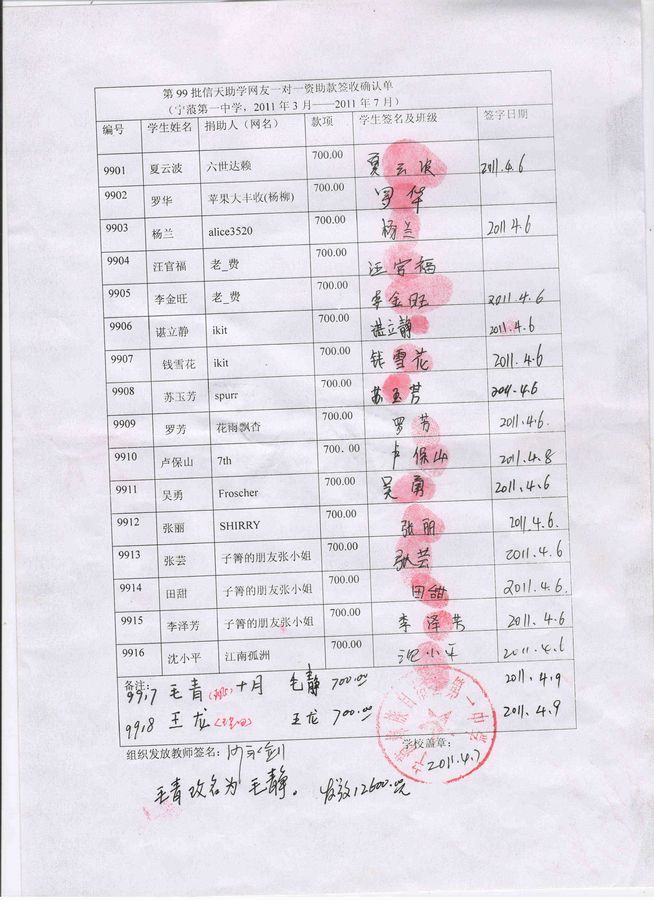 第99批信天助学网友一对一资助款签收确认单
(宁蒗第一中学，2011年3月——2011年7月)
编号 学生姓名 捐助人（网名） 款项 学生签名及班级 签字日期
9901 夏云波 六世达赖 700.00 夏云波 2011.4.6
9902 罗华 苹果大丰收(杨柳) 700.00 罗华
9903 杨兰 alice3520 700.00 杨兰 2011 4.6
9904 汪官福 老_费 700.00 汪官福
9905 李金旺 老_费 700.00 李金旺 2011.4.6
9906 谌立静 ikit 700.00 谌立静 2011.4.6
9907 钱雪花 ikit 700.00 钱雪花 2011.4.6
9908 苏玉芳 spurr 700.00 苏玉芳 2011.4.6
9909 罗芳 花雨飘杳 700.00 罗芳 2011.4.6.
9910 卢保山 7th 700．00 卢保山 2011.4.8
9911 吴勇 Froscher 700.00 吴勇 2011.4.6
9912 张丽 SHIRRY 700.00 张丽 2011.4.6.
9913 张芸 子箐的朋友张小姐 700.00 张芸 2011.4.6
9914 田甜 子箐的朋友张小姐 700.00 田甜 2011.4.6.
9915 李泽芳 子箐的朋友张小姐 700.00 李泽芳 2011.4.6
9916 沈小平 江南孤洲 700.00 沈小平 2011.4.6
备注:
9917 毛青 十月 毛静 700.00 2011.4.9
9918 王龙 王龙 700.00 2011.4.9
组织发放教师签名:
学校盖章:
2011.4.7
毛青改名为毛静。 发放12600.元